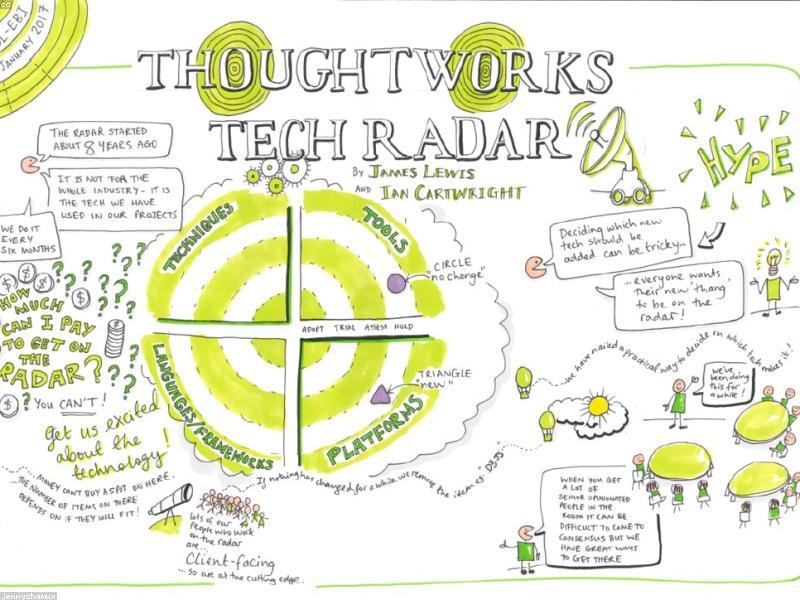 cc
OL-EBI
JANUARY 2017
THOUGHTWORKS
TECH RADAR
By JAMES LEWIS
AND IAN CARTWRIGHT
HYPE
THE RADAR STARTED
ABOUT 8 YEARS AGO
IT IS NOT FOR THE
WHOLE INDUSTRY - IT IS
THE TECH WE HAVE
USED IN OUR PROJECTS
WE DO IT
EVERY
SIX MONTHS
HOW
MUCH
CAN I PAY
TO GET ON
THE
RADAR?
YOU CAN'T!
Get us excited
about the
technology!
...MONEY CAN'T BUY A SPOT ON HERE.
THE NUMBER OF ITEMS ON THERE
DEPENDS ON IF THEY WILL FIT!
TECHNIQUES
TOOLS
CIRCLE
"no change"
ADOPT TRIAL ASSESS HOLD
TRIANGLE
"new"
LANGUAGES/FRAMEWORKS
PLATFORMS
If nothing has changed for a while we remove the item
lots of our
people who work
on the radar
are...
Client-facing
... so are at the cutting edge.
Deciding which new
tech should be
added can be tricky...
...everyone wants
their new 'thang'
to be on the
radar!
we have nailed a practical way to decide on which tech makes it!
we've
been doing
this for
a while!
WHEN YOU GET
A LOT OF
SENIOR OPINIONATED
PEOPLE IN THE
ROOM IT CAN BE
DIFFICULT TO COME TO
CONSENSUS BUT WE
HAVE GREAT WAYS
TO GET THERE
jennychamux